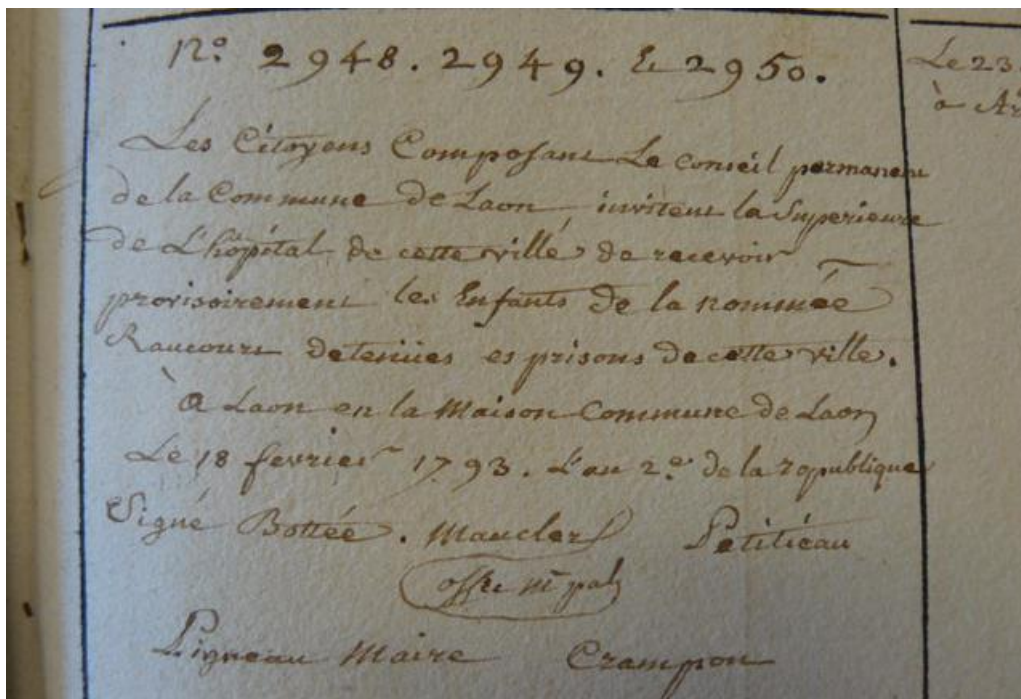 N.o 2948. 2949. & 2950.
Le 23
à Ar
Les Citoyens Composant Le Conseil permanent
de la Commune de Laon, invitent la Superieure
de L'hôpital de cette ville de recevoir
provisoirement les Enfants de la nommée
Raucourt detenües es prisons de cette ville.
à Laon en la Maison Commune de Laon
Le 18 fevrier 1793. L'an 2.e de la republique
Signé Bottée. Maucler Petitjeau
offer m pal
Ligneau Maire Crampon